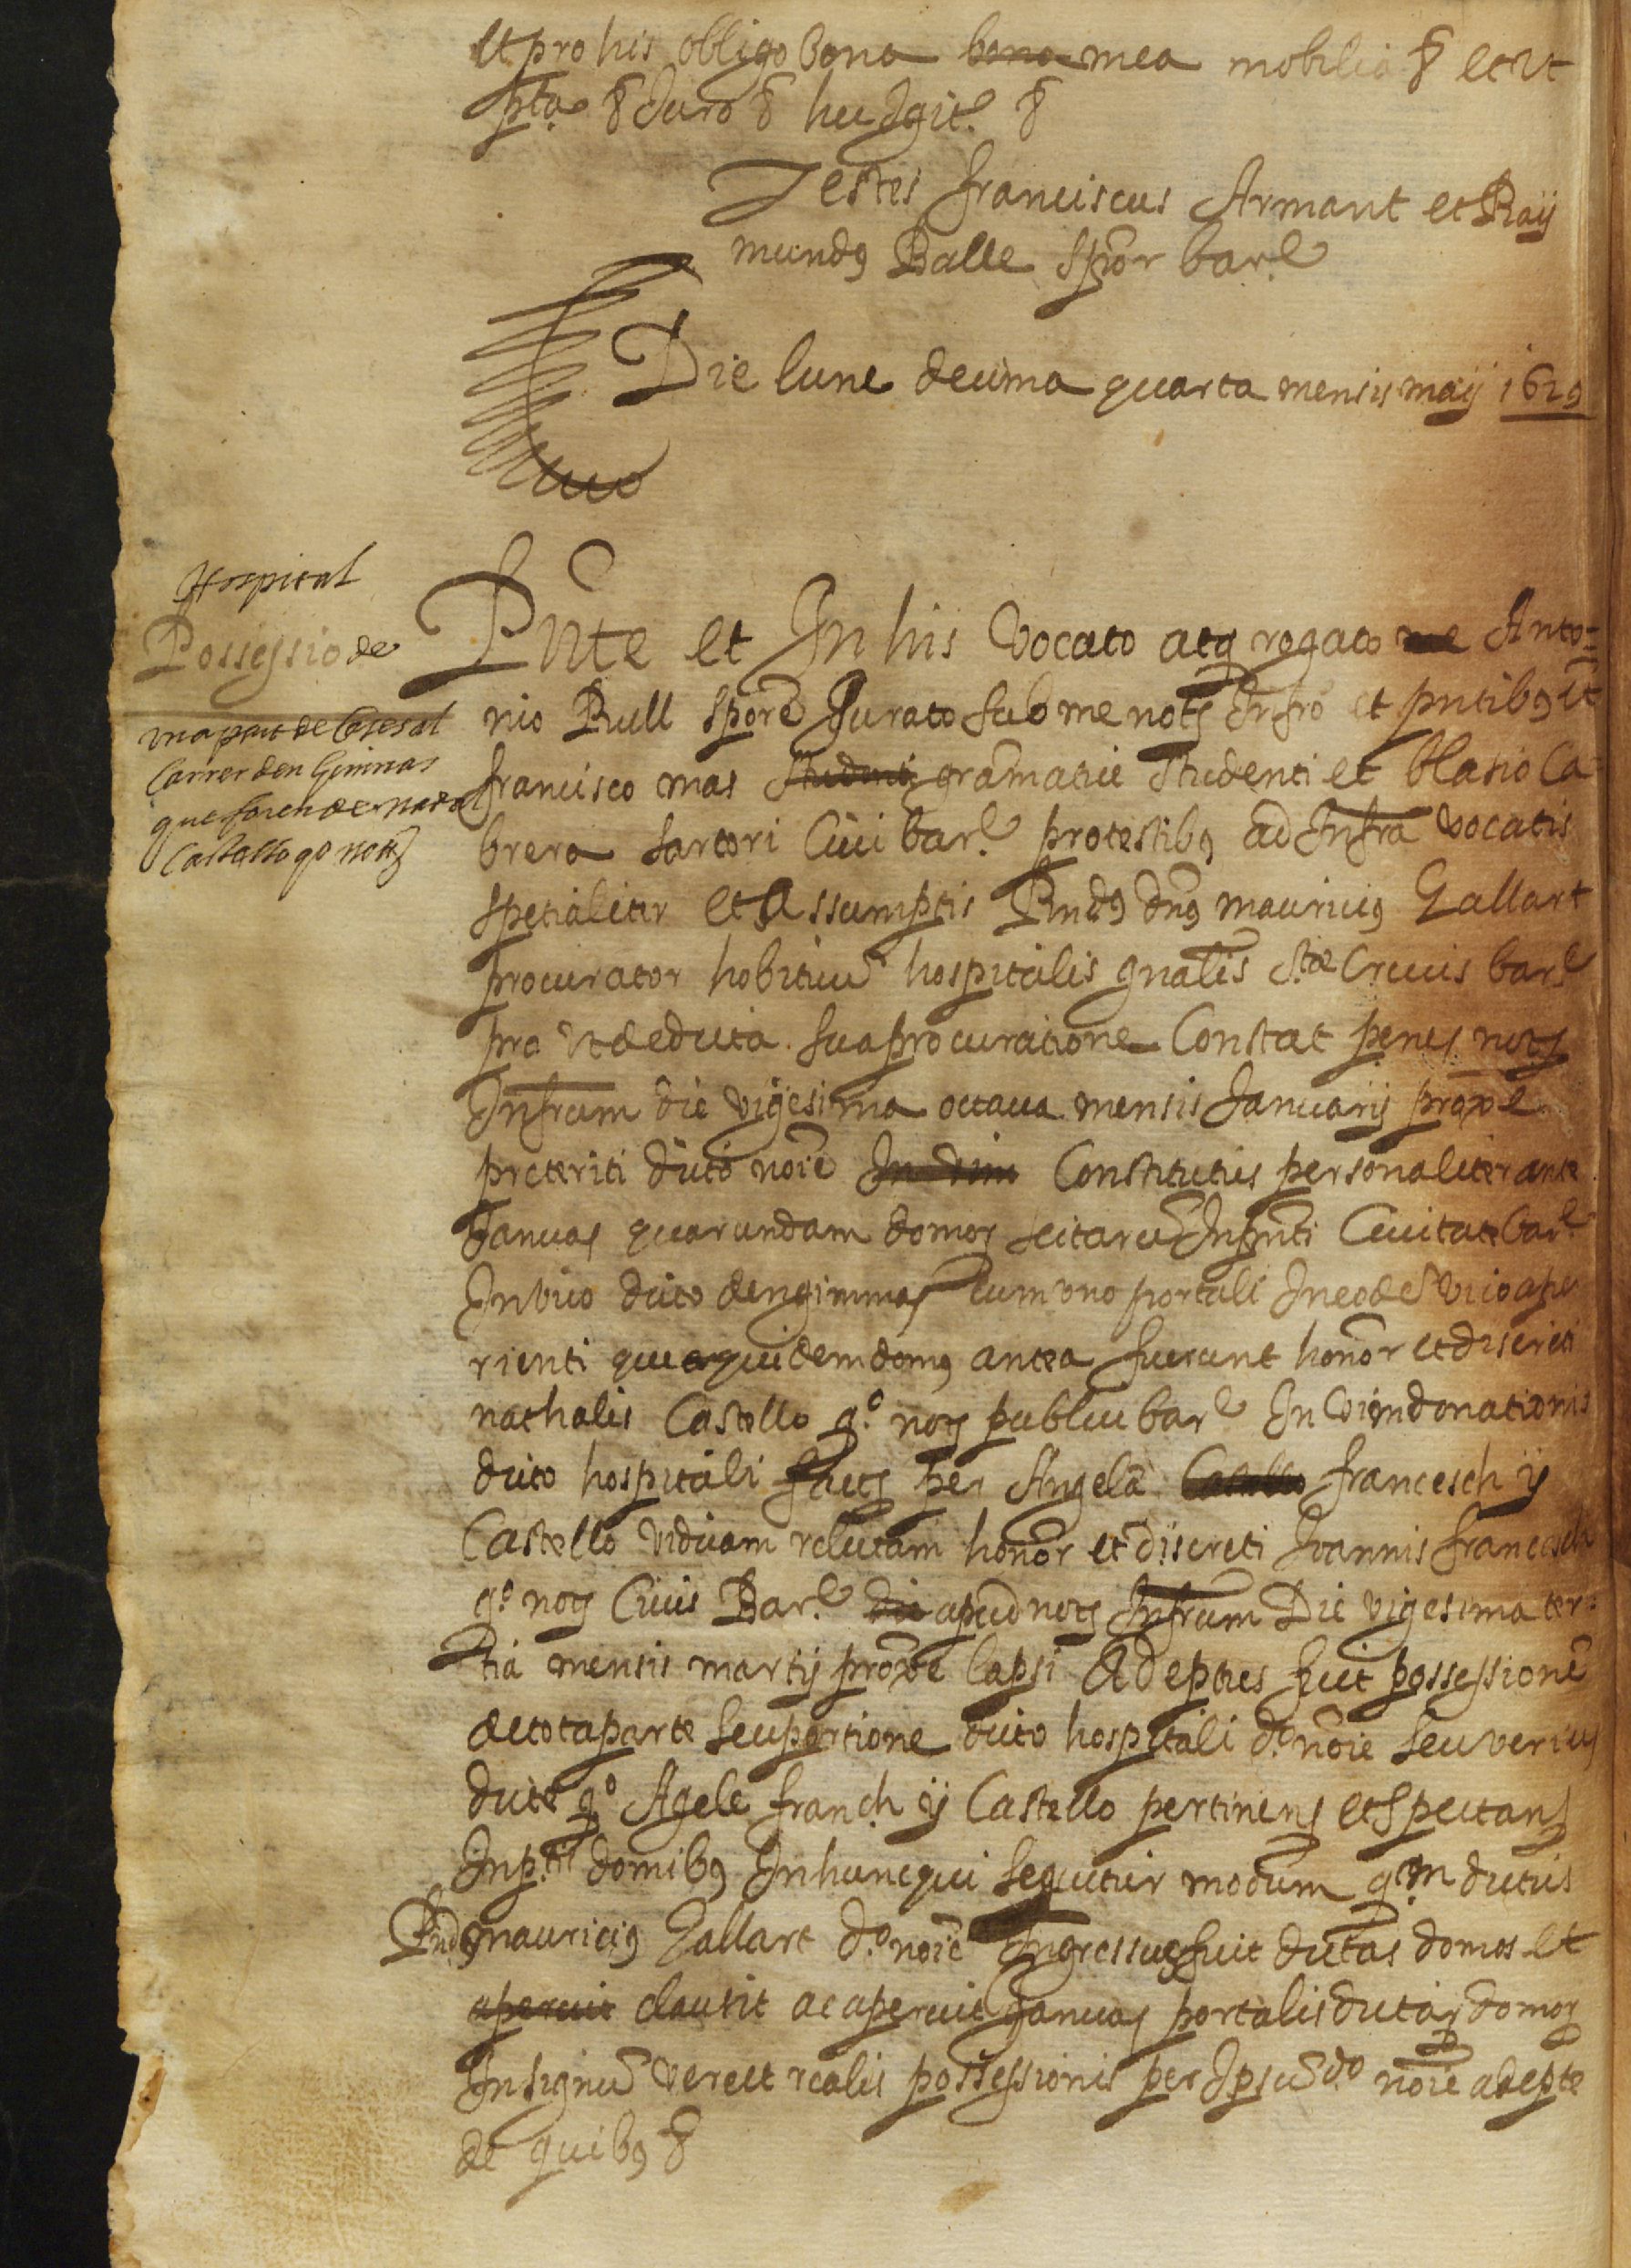 et pro his obligo bona bona mea mobilia & et ut
pta & Juro & hec Igit. &
Testes franciscus Armant et Raij
mundq Balle spror barl
Die lune decima quarta mensis maij 1629
Hospital
Possessio de
una part de Cases al
Carrer den Gimnas
que foren de nadal
Castello qo notz
Pnte et In his vocato atq rogato me Anto=
nio Rull spore Jurato sub me notz Infro et pntibq it
francisco mas studenti gramatice studenti et blasio Ca=
brera sartori Civi barl pro testibq ad Infra vocatis
spetialiter et Assumptis Rndq dnq mauriciq Gallart
procurator hobituu hospitalis gnalis Stae Crucis barl
pro ut de educta sua procuratione Constat penes notz
Infrum die vigesima octava mensis Januarij proxe
preteriti dicto noie In dim Constitutus personaliter ante
Januas quarundam domoz scitaru In pnti Civitate barl
In vico dicto den gimnas cum uno portali In eode vico ape
rienti que quidem domq antea fuerunt honor et discreti
nathalis Castello qo notz publici barl In vim donationis
dicto hospitali factz per Angela Castello francesch y
Castello viduam relictam honor et discreti Joannis francesch
qo notz Civis Barl die apud notz Infrum Die vigesima ter=
tia mensis martij proxe lapsi Adeptus fuit possessione
de tota parte seu portione dicto hospitali do noie seu verius
dicte qo Agele franch y Castello pertinens et spectans
In ptis domibq In hunc qui sequitur modum qm dictus
Rndq mauriciq Gallart do noie Ingressus fuit dictas domos et
aperuit clausit ac aperuit Januas portalis dictaz domoz
In signu vere et realis possessionis per Ipsu do noie adepte
de quibq &